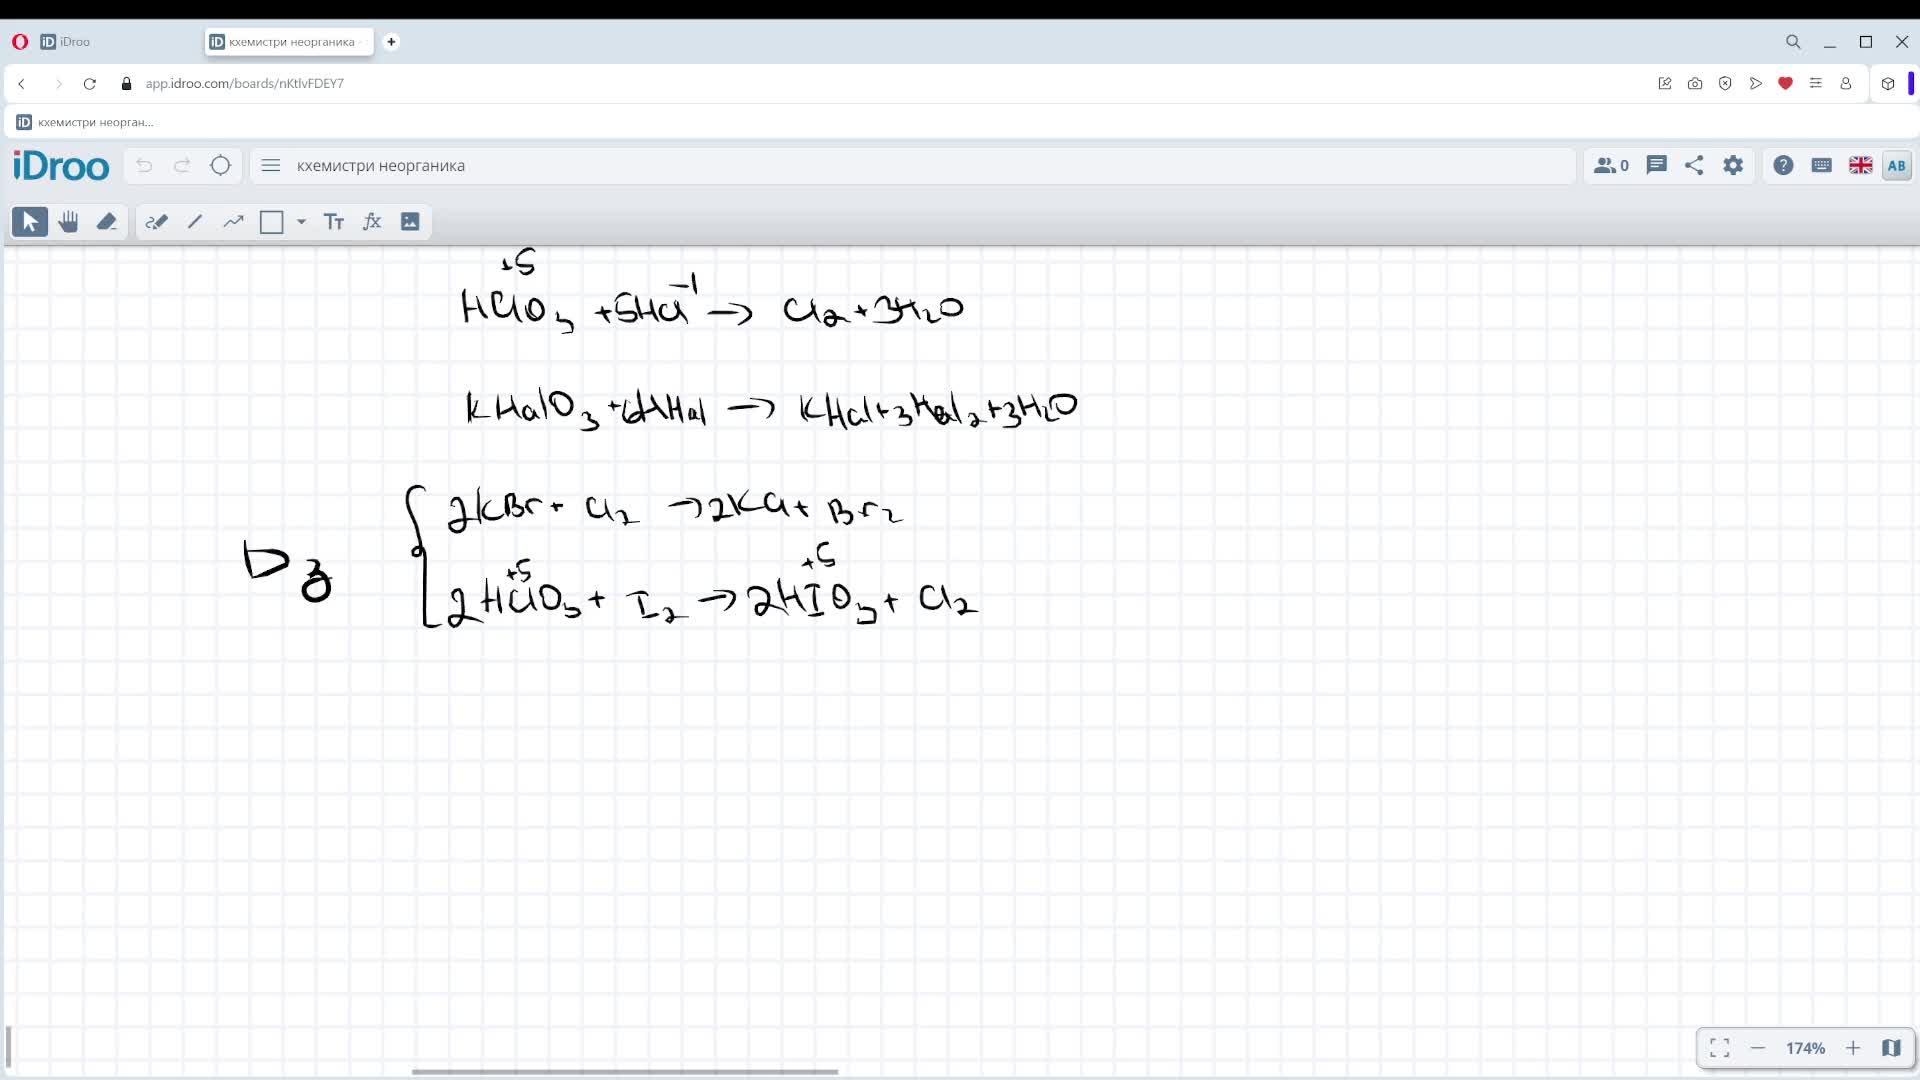 iDroo
кхемистри неорганика
app.idroo.com/boards/nKtlvFDEY7
кхемистри неорган...
iDroo
кхемистри неорганика
0
AB
+5
HClO3 + 5HCl -1 → Cl2 + 3H2O
KHalO3 + 6HHal → KHal + 3Hal2 + 3H2O
2KBr + Cl2 → 2KCl + Br2
Dз
+5 +5
2HClO3 + I2 → 2HIO3 + Cl2
174%